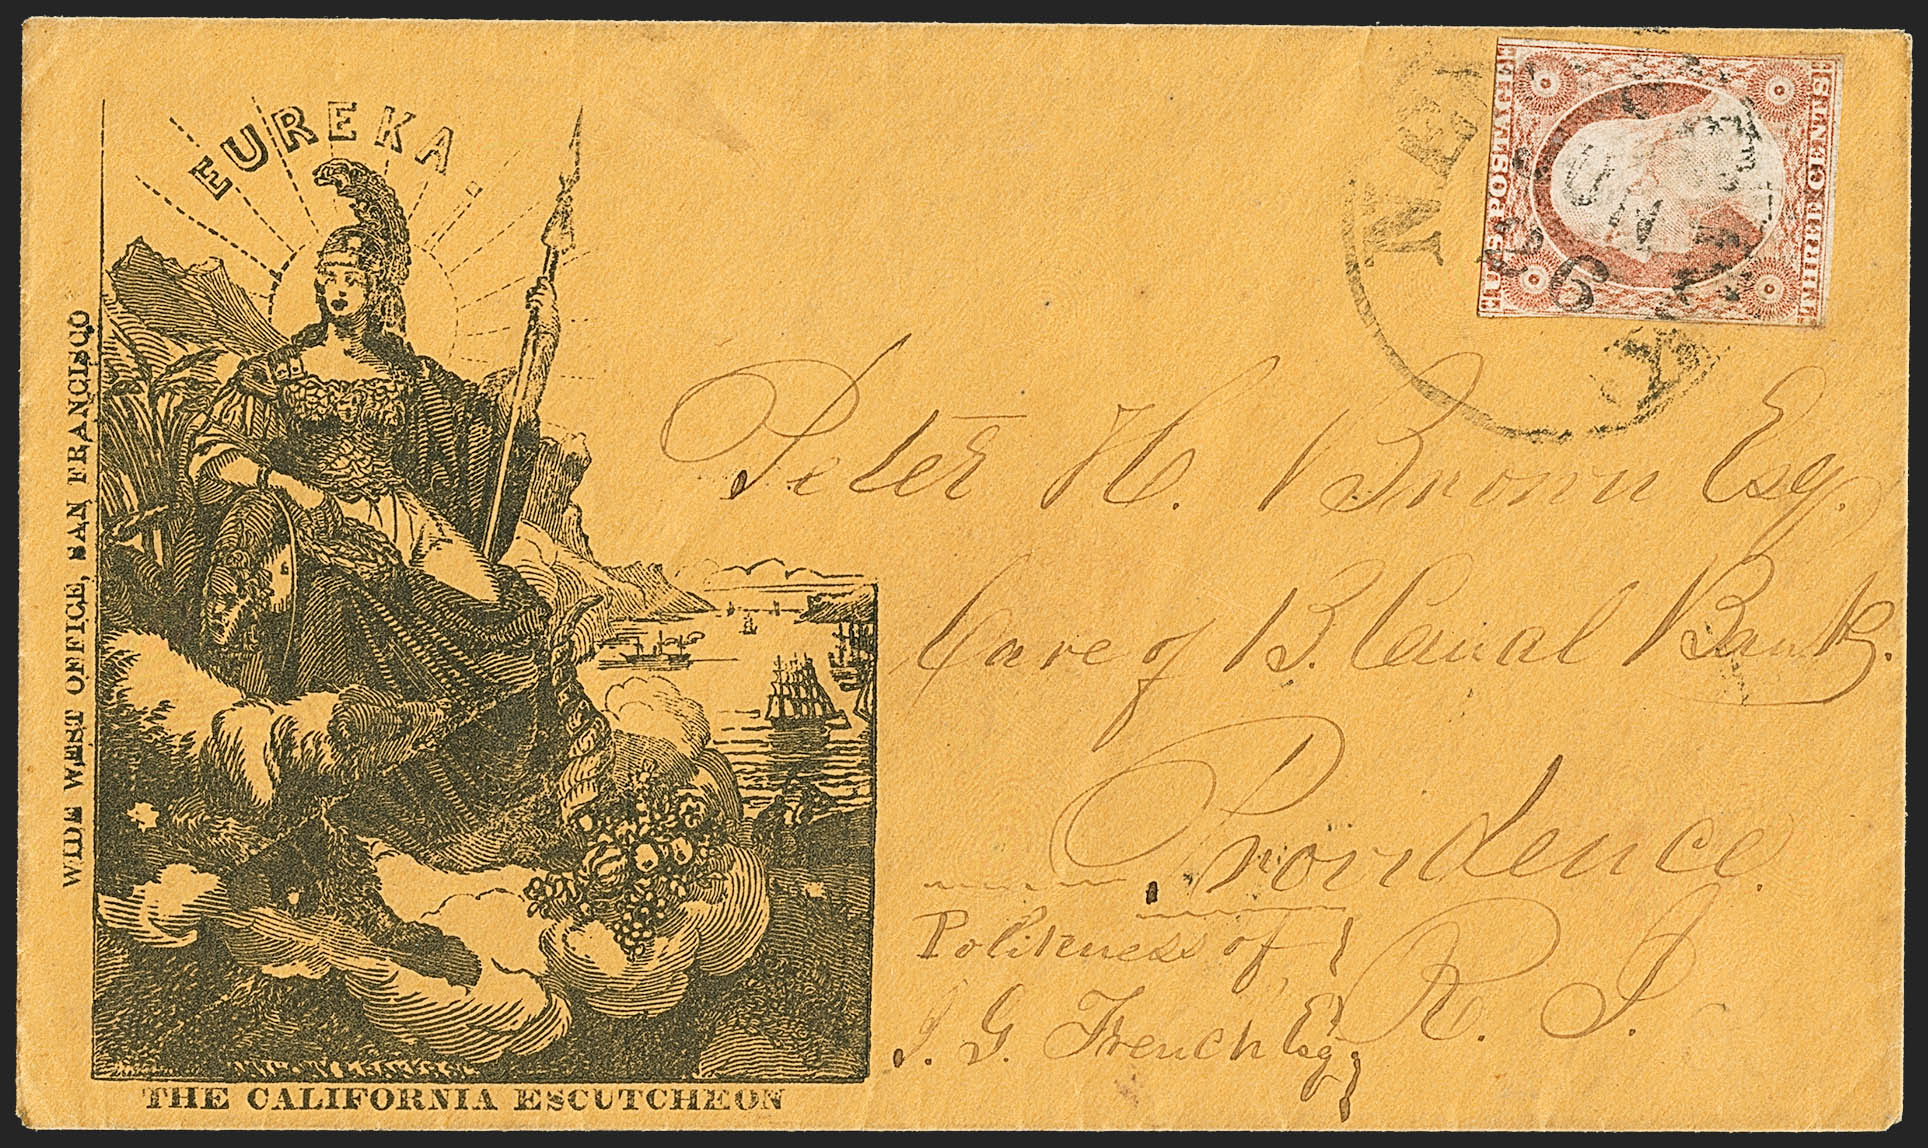 EUREKA.
WIDE WEST OFFICE, SAN FRANCISCO
THE CALIFORNIA ESCUTCHEON
U.S. POSTAGE
THREE CENTS
NEW
JUN
26
Peter H. Brown Esq.
Care of B. Canal Bank.
Providence
R. I.
Politeness of
J. G. French Esq.